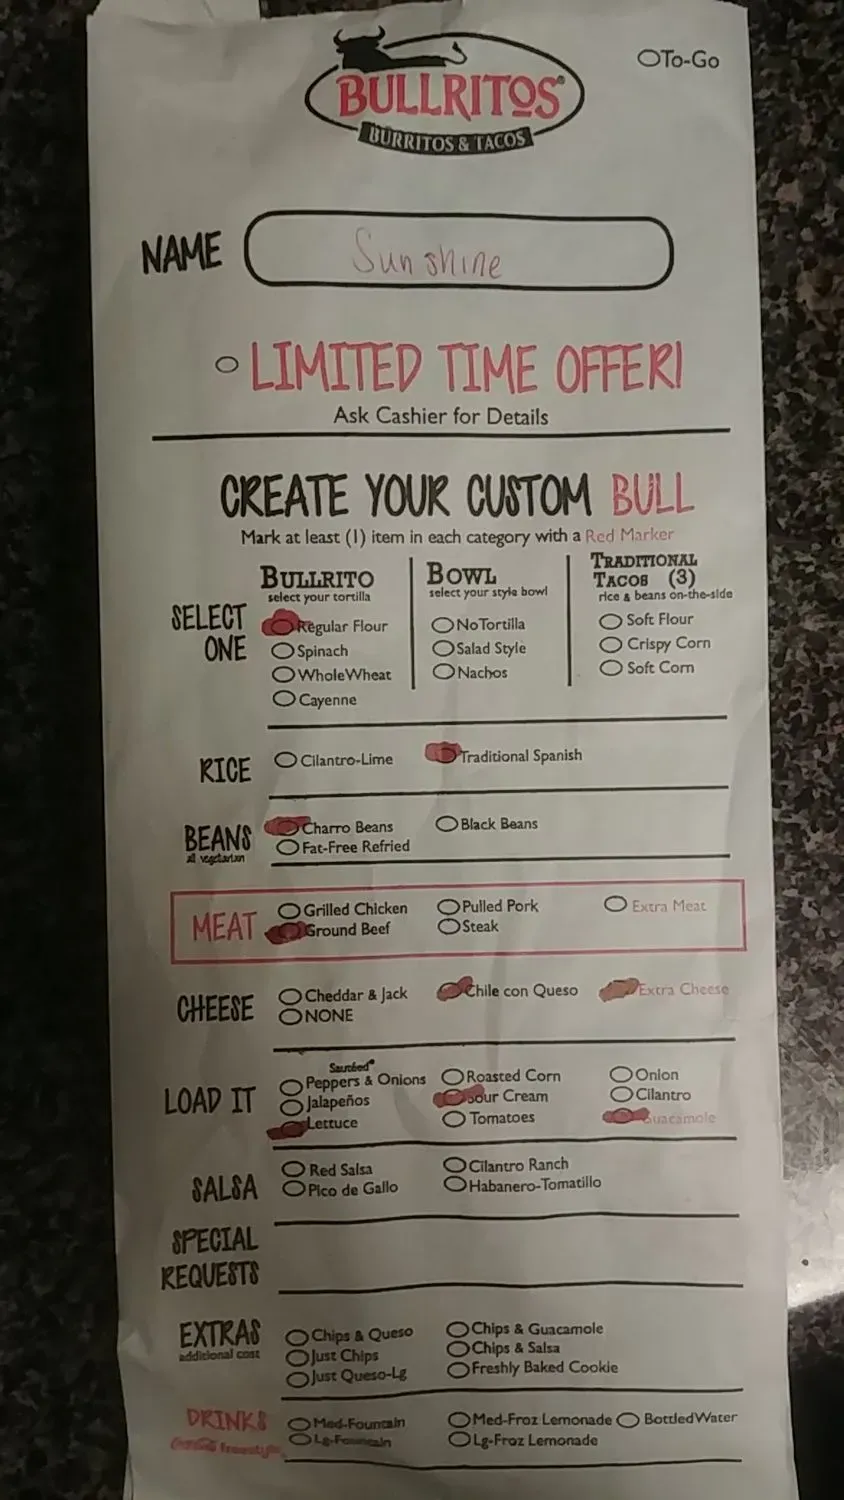 To-Go
BULLRITOS®
BURRITOS & TACOS
NAME Sunshine
LIMITED TIME OFFER!
Ask Cashier for Details
CREATE YOUR CUSTOM BULL
Mark at least (1) item in each category with a Red Marker
SELECT ONE
BULLRITO
select your tortilla
Regular Flour
Spinach
Whole Wheat
Cayenne
BOWL
select your style bowl
No Tortilla
Salad Style
Nachos
TRADITIONAL
TACOS (3)
rice & beans on-the-side
Soft Flour
Crispy Corn
Soft Corn
RICE
Cilantro-Lime Traditional Spanish
BEANS
all vegetarian
Charro Beans Black Beans
Fat-Free Refried
MEAT
Grilled Chicken Pulled Pork Extra Meat
Ground Beef Steak
CHEESE
Cheddar & Jack Chile con Queso Extra Cheese
NONE
LOAD IT
Sautéed*
Peppers & Onions Roasted Corn Onion
Jalapeños Sour Cream Cilantro
Lettuce Tomatoes Guacamole
SALSA
Red Salsa Cilantro Ranch
Pico de Gallo Habanero-Tomatillo
SPECIAL
REQUESTS
EXTRAS
additional cost
Chips & Queso Chips & Guacamole
Just Chips Chips & Salsa
Just Queso-Lg Freshly Baked Cookie
DRINKS
Coca-Cola freestyle
Med-Fountain Med-Froz Lemonade Bottled Water
Lg-Fountain Lg-Froz Lemonade